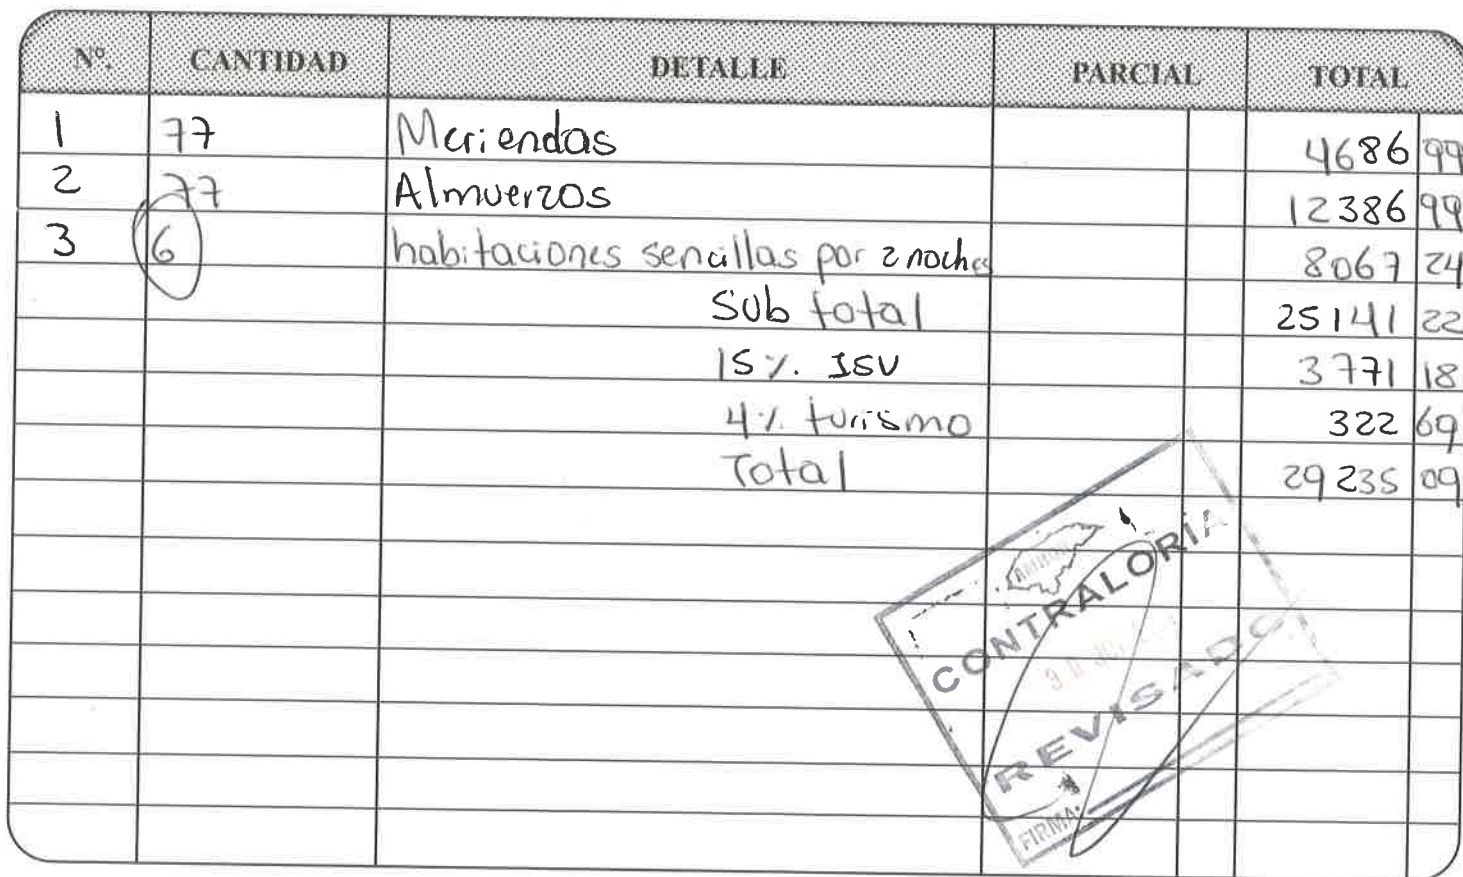 Nº. CANTIDAD DETALLE PARCIAL TOTAL
1 77 Meriendas 4686 99
2 77 Almuerzos 12386 99
3 6 habitaciones sencillas por 2 noches 8067 24
Sub total 25141 22
15%. ISV 3771 18
4%. turismo 322 69
Total 29235 09
CONTRALORÍA
REVISADO
FIRMA: